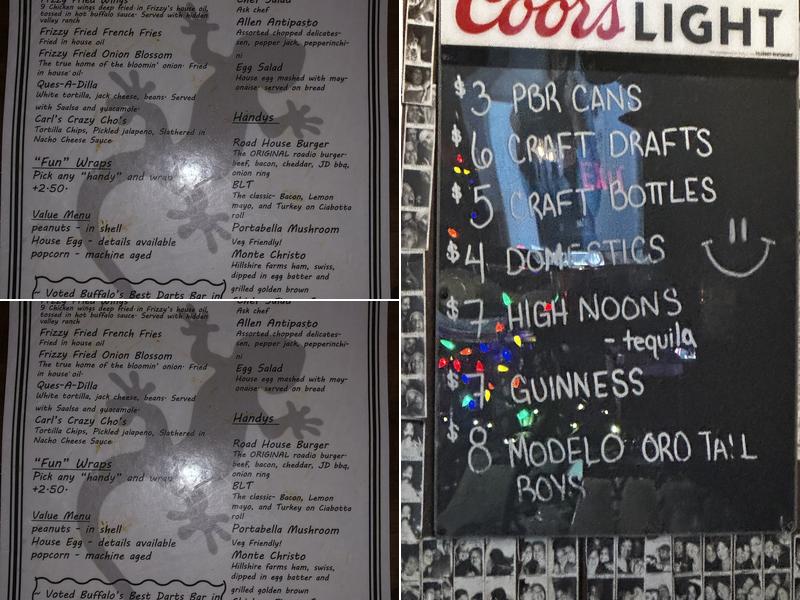 9 Chicken wings deep fried in Frizzy's house oil,
tossed in hot buffalo sauce· Served with hidden
valley ranch
Frizzy Fried French Fries
Fried in house oil
Frizzy Fried Onion Blossom
The true home of the bloomin' onion· Fried
in house oil·
Ques-A-Dilla
White tortilla, jack cheese, beans· Served
with Saalsa and guacamole·
Carl's Crazy Cho's
Tortilla Chips, Pickled jalapeno, Slathered in
Nacho Cheese Sauce
"Fun" Wraps
Pick any "handy" and wrap
+2.50·
Value Menu
peanuts - in shell
House Egg - details available
popcorn - machine aged
~ Voted Buffalo's Best Darts Bar in
Chef Salad
Ask chef
Allen Antipasto
Assorted chopped delicates-
sen, pepper jack, pepperinchi-
ni
Egg Salad
House egg mashed with may-
onaise· served on bread
Handys
Road House Burger
The ORIGINAL roadio burger·
beef, bacon, cheddar, JD bbq,
onion ring
BLT
The classic- Bacon, Lemon
mayo, and Turkey on Ciabotta
roll
Portabella Mushroom
Veg Friendly!
Monte Christo
Hillshire farms ham, swiss,
dipped in egg batter and
grilled golden brown
Frizzy Fried Wings
9 Chicken wings deep fried in Frizzy's house oil,
tossed in hot buffalo sauce· Served with hidden
valley ranch
Frizzy Fried French Fries
Fried in house oil
Frizzy Fried Onion Blossom
The true home of the bloomin' onion· Fried
in house oil·
Ques-A-Dilla
White tortilla, jack cheese, beans· Served
with Saalsa and guacamole·
Carl's Crazy Cho's
Tortilla Chips, Pickled jalapeno, Slathered in
Nacho Cheese Sauce
"Fun" Wraps
Pick any "handy" and wrap
+2.50·
Value Menu
peanuts - in shell
House Egg - details available
popcorn - machine aged
~ Voted Buffalo's Best Darts Bar in
Chef Salad
Ask chef
Allen Antipasto
Assorted chopped delicates-
sen, pepper jack, pepperinchi-
ni
Egg Salad
House egg mashed with may-
onaise· served on bread
Handys
Road House Burger
The ORIGINAL roadio burger·
beef, bacon, cheddar, JD bbq,
onion ring
BLT
The classic- Bacon, Lemon
mayo, and Turkey on Ciabotta
roll
Portabella Mushroom
Veg Friendly!
Monte Christo
Hillshire farms ham, swiss,
dipped in egg batter and
grilled golden brown
Coors LIGHT
$3 PBR CANS
$6 CRAFT DRAFTS
$5 CRAFT BOTTLES
$4 DOMESTICS
$7 HIGH NOONS
- tequila
$7 GUINNESS
$8 MODELO ORO TALL
BOYS